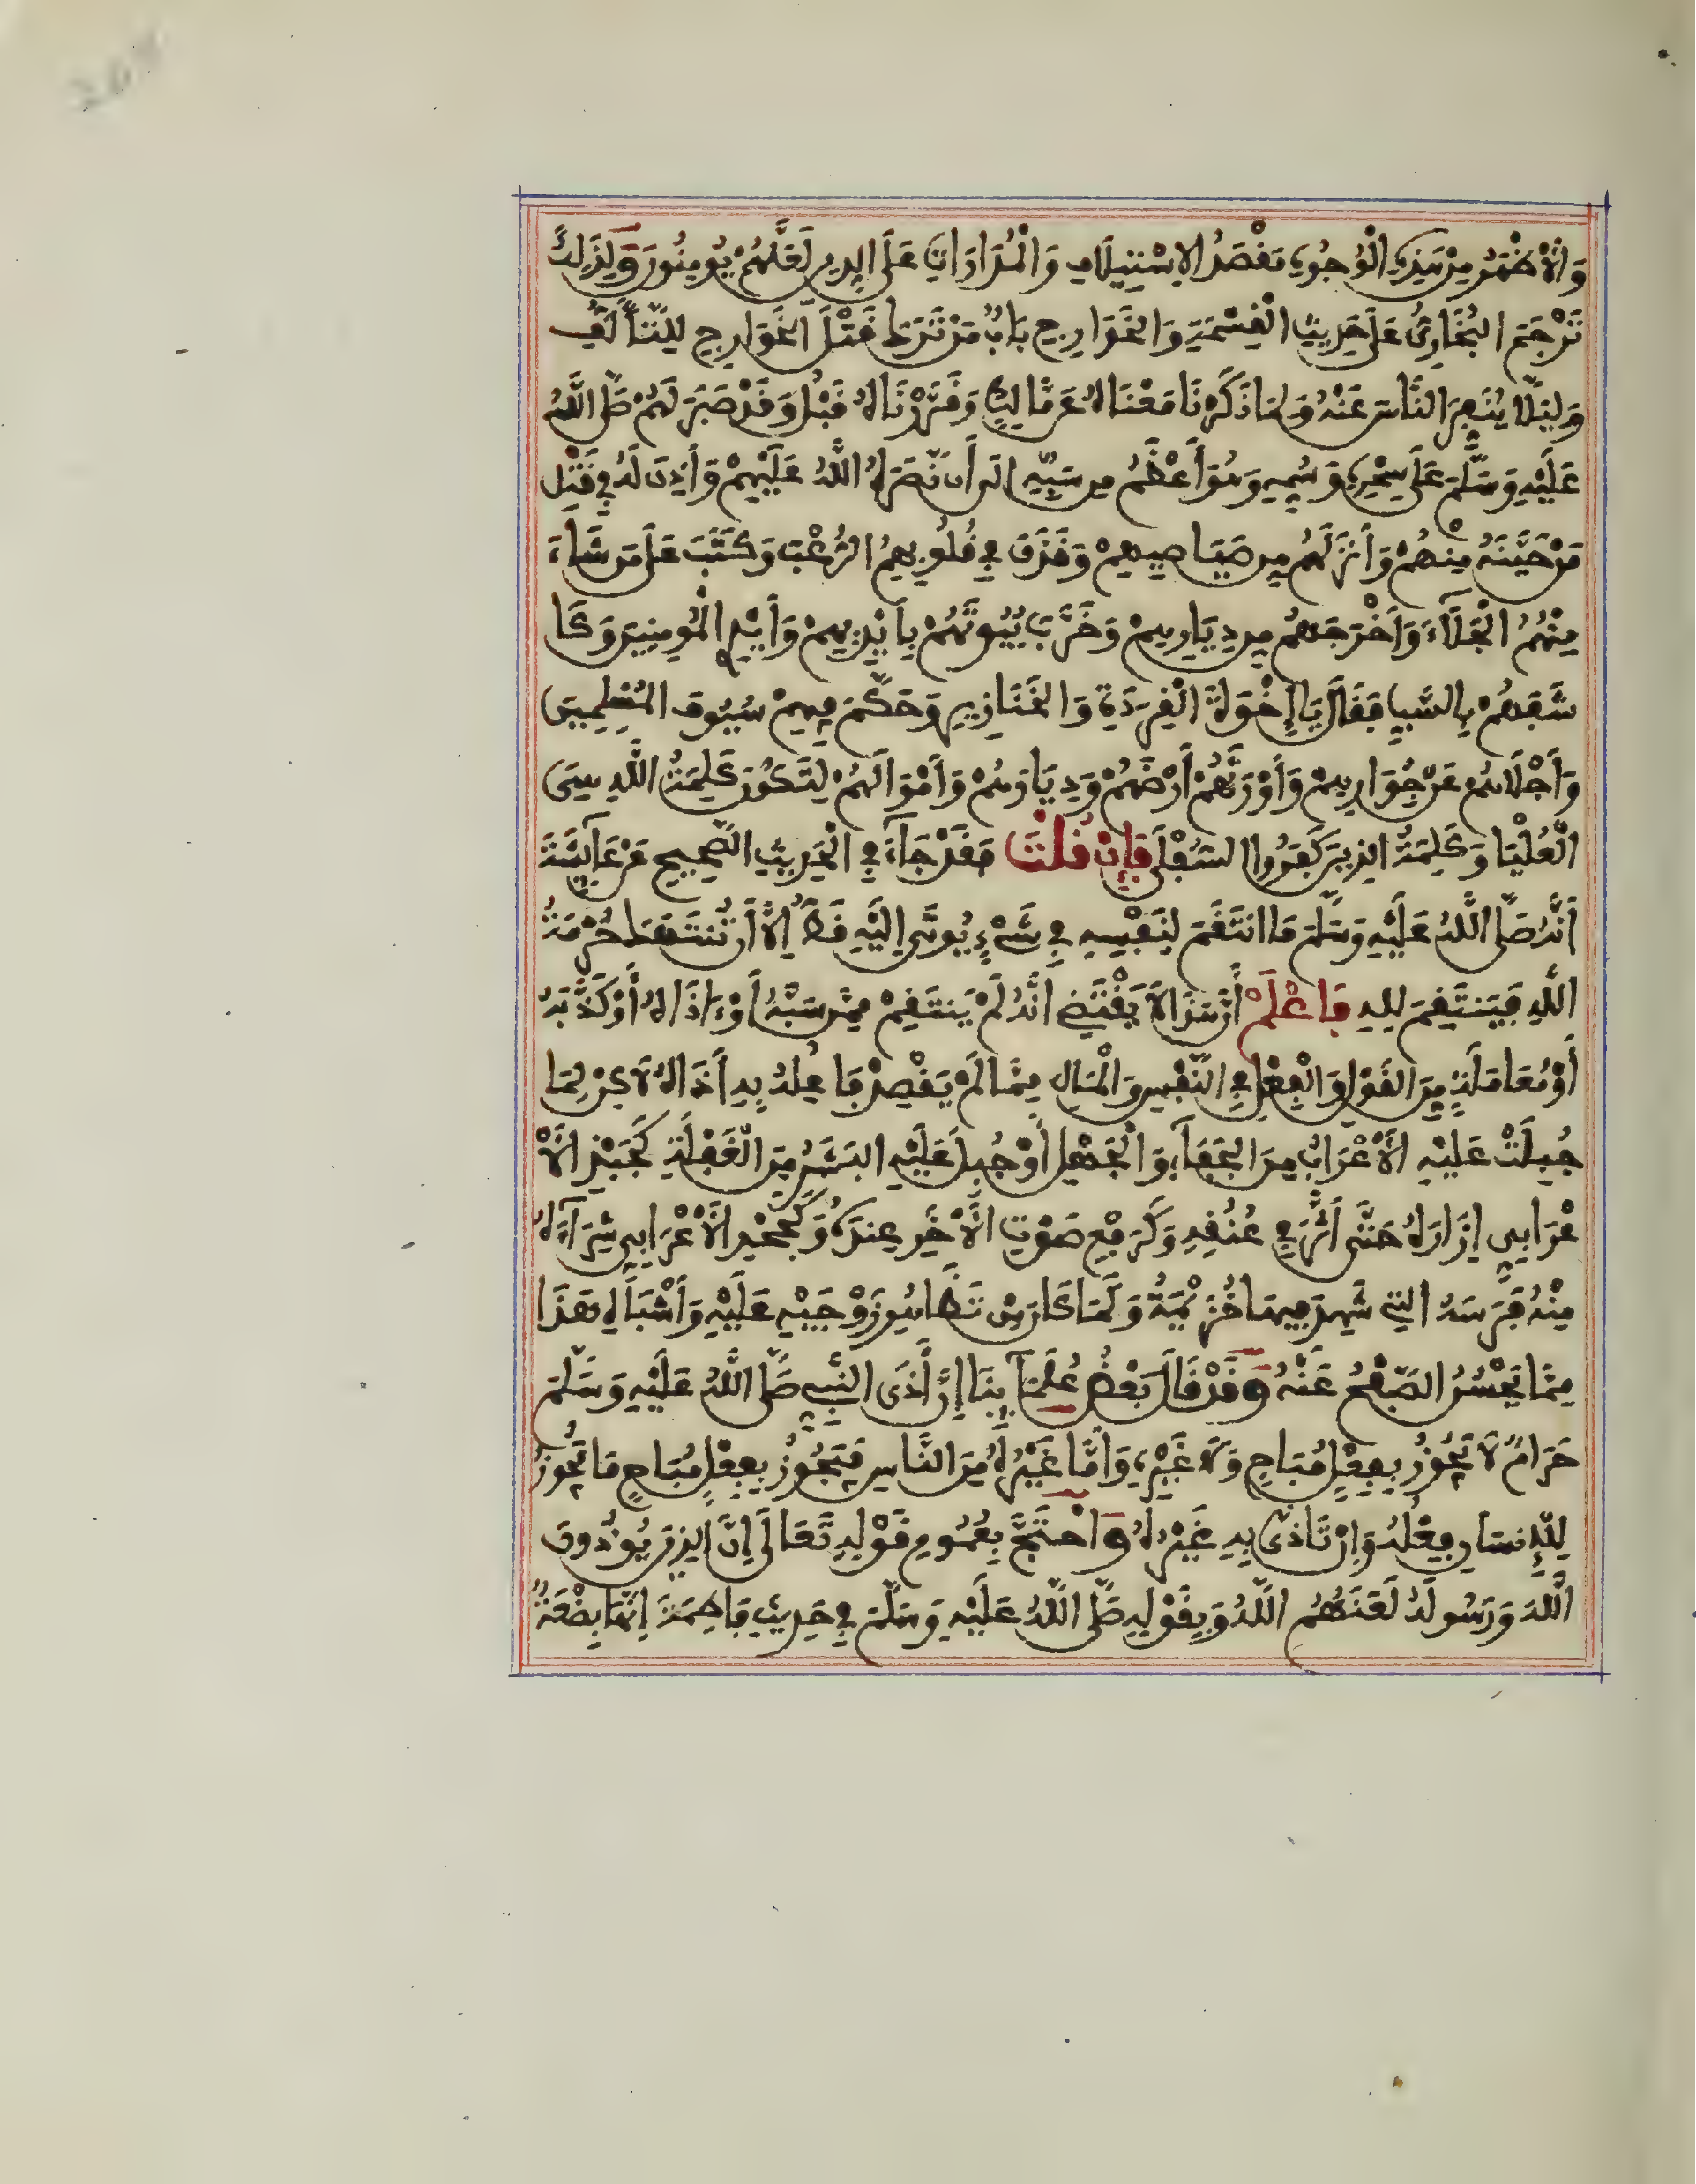 وَالْأَظْهَرُ مِنْ هَذِهِ الْوُجُوهِ مَقْصَدُ الِاسْتِيلَافِ وَالْمُدَارَاتِ عَلَى الدِّينِ لَعَلَّهُمْ يُومِنُونَ وَلِذَلِكَ
تَرْجَمَ الْبُخَارِيُّ عَلَى حَدِيثِ الْقِسْمَةِ وَالْخَوَارِجِ بَابُ مَنْ تَرَكَ قَتْلَ الْخَوَارِجِ لِلتَّأَلُّفِ
وَلِيَلَّا يَنْفِرَ النَّاسُ عَنْهُ وَلِمَا ذَكَرْنَا مَعْنَاهُ عَنْ مَالِكٍ وَقَرَّرْنَاهُ قَبْلُ وَقَدْ صَبَرَ لَهُمْ صَلَّى اللَّهُ
عَلَيْهِ وَسَلَّمَ عَلَى سِحْرِهِ وَسُمِّهِ وَهُوَ أَعْظَمُ مِن سَبِّهِ الَى أَن نَصَرَهُ اللَّهُ عَلَيْهِمْ وَأَذِنَ لَهُ فِي قَتْلِ
مَنْ حَيَّنَهُ مِنْهُمْ وَأَنْزَلَهُمْ مِن صَيَاصِيهِمْ وَقَذَفَ فِي قُلُوبِهِمُ الرُّعْبَ وَكَتَبَ عَلَى مَن شَاءَ
مِنْهُمُ الْجَلَاءَ وَأَخْرَجَهُمْ مِن دِيَارِهِمْ وَخَرَّبَ بُيُوتَهُمْ بِأَيْدِيهِمْ وَأَيْدِي الْمُومِنِينَ وَكَا
شَفَهُمْ بِالسَّبِّ فَقَالَ يَا إِخْوَةَ الْقِرَدَةِ وَالْخَنَازِيرِ وَحَكَّمَ فِيهِمْ سُيُوفَ الْمُسْلِمِينَ
وَأَجْلَاهُمْ عَنْ جِوَارِهِمْ وَأَوْرَثَهُمْ أَرْضَهُمْ وَدِيَارَهُمْ وَأَمْوَالَهُمْ لِتَكُونَ كَلِمَةُ اللَّهِ هِيَ
الْعُلْيَا وَكَلِمَةُ الذِينَ كَفَرُوا السُّفْلَى فَإِنْ قُلْتَ فَقَدْ جَاءَ فِي الْحَدِيثِ الصَّحِيحِ عَنْ عَايِشَةَ
أَنَّهُ صَلَّى اللَّهُ عَلَيْهِ وَسَلَّمَ مَا انْتَقَمَ لِنَفْسِهِ فِي شَيْءٍ يُوتَى إِلَيْهِ قَطُّ إِلَّا أَن تُنتَهَكَ حُرْمَةُ
اللَّهِ فَيَنتَقِمَ لِلهِ فَاعْلَمْ أَنَّ هَذَا لَا يَقْتَضِي أَنَّهُ لَمْ يَنتَقِمْ مِمَّن سَبَّهُ أَوْ ءَاذَاهُ أَوْ كَذَّبَهُ
أَوْ مُعَامَلَةٍ مِنَ الْقَوْلِ وَالْفِعْلِ فِي النَّفْسِ وَالْمَالِ مِمَّا لَمْ يَقْصِدْ فَاعِلُهُ بِهِ أَذَاهُ لَاكِنْ لِمَا
جُبِلَتْ عَلَيْهِ الْأَعْرَابُ مِنَ الْجَفَاءِ وَالْجَهْلِ أَوْ جُبِلَ عَلَيْهِ الْبَشَرُ مِنَ الْغَفْلَةِ كَجَبْذِ الْأَ
عْرَابِيِّ إِزَارَهُ حَتَّى أَثَّرَ فِي عُنُقِهِ وَكَرَفْعِ صَوْتِ الْآخَرِ عِندَهُ وَكَجَحْدِ الْأَعْرَابِيِّ شِرَاءَهُ
مِنْهُ فَرَسَهُ التِي شَهِدَ فِيهَا خُزَيْمَةُ وَلِمَا كَانَ مِن تَظَاهُرِ زَوْجَيْهِ عَلَيْهِ وَأَشْبَاهِ هَذَا
مِمَّا يَحْسُنُ الصَّفْحُ عَنْهُ وَقَدْ قَالَ بَعْضُ عُلَمَايِنَا إِنَّ أَذَى النَّبِي صَلَّى اللَّهُ عَلَيْهِ وَسَلَّمَ
حَرَامٌ لَا تَجُوزُ بِفِعْلٍ مُبَاحٍ وَلَا غَيْرِهِ وَأَمَّا غَيْرُهُ مِنَ النَّاسِ فَتَجُوزُ بِفِعْلٍ مُبَاحٍ مَا تَجُوزُ
لِلْإِنسَانِ فِعْلُهُ وَإِنْ تَأَذَّى بِهِ غَيْرُهُ وَاحْتَجَّ بِعُمُومِ قَوْلِهِ تَعَالَى إِنَّ الذِينَ يُوذُونَ
اللَّهَ وَرَسُولَهُ لَعَنَهُمُ اللَّهُ وَبِقَوْلِهِ صَلَّى اللَّهُ عَلَيْهِ وَسَلَّمَ فِي حَدِيثِ فَاطِمَةَ إِنَّهَا بِضْعَةٌ